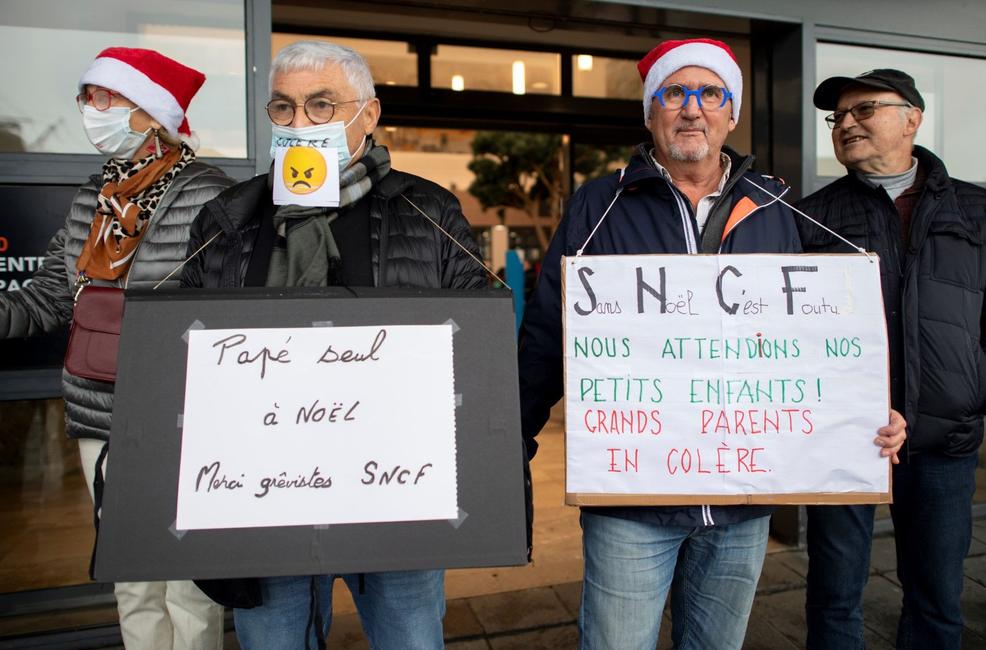 COLÈRE
Papé seul
à NOËL
Merci grêvistes SNCF
Sans Noël C'est Foutu !
NOUS ATTENDiONS NOS
PETITS ENFANTS !
GRANDS PARENTS
EN COLÈRE.